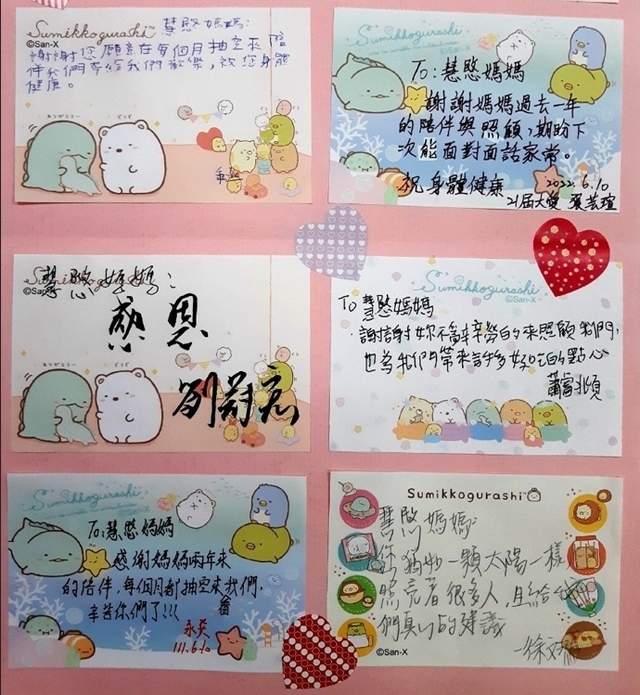 Sumikkogurashi™
©San-X
慧慇媽媽:
謝謝您願意在每個月抽空來陪
伴我們帶給我們歡樂,祝您身體
健康。
ありがとう
Sumikkogurashi
To: 慧慇媽媽
謝謝媽媽過去一年
的陪伴與照顧,期盼下
次能面對面話家常。
祝身體健康
2022.6.10
21屆大愛
Sumikkogurashi
慧慇媽媽:
感恩
Sumikkogurashi
©San-X
To 慧慇媽媽
謝謝妳不辭辛勞的來照顧我們,
也為我們帶來許多好吃的點心
Sumikkogurashi
To: 慧慇媽媽
感謝媽媽兩年來
的陪伴,每個月都抽空來我們,
辛苦你們了!!!
111.6.10
Sumikkogurashi™
慧慇媽媽
你猶如一顆太陽一樣
照亮著很多人,且給我
們真心的建議
©San-X